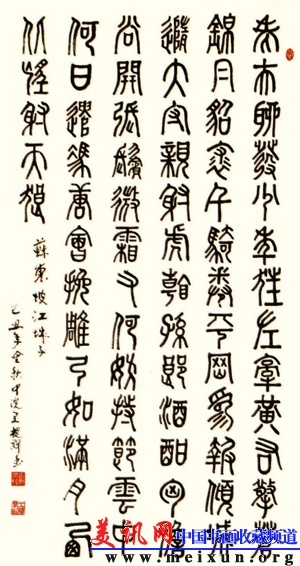 老夫聊發少年狂左牽黃右擎蒼
錦帽貂裘千騎卷平岡為報傾城
隨太守親射虎看孫郎酒酣胸膽
尚開張鬢微霜又何妨持節雲中
何日遣馮唐會挽雕弓如滿月西
北望射天狼
蘇東坡江城子
己丑年金秋中浣王
美讯网 中国书画收藏频道
www.meixun.org